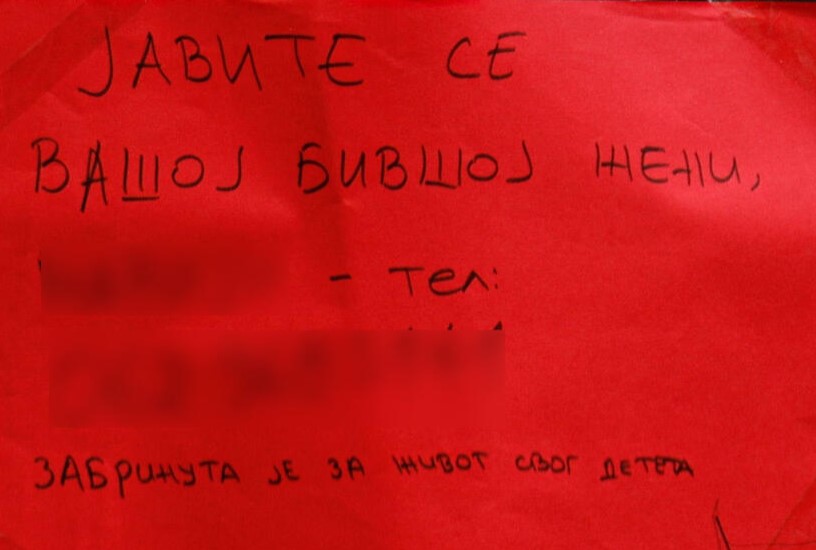 ЈАВИТЕ СЕ
ВАШОЈ БИВШОЈ ЖЕНИ,
- Тел:
ЗАБРИНУТА ЈЕ ЗА ЖИВОТ СВОГ ДЕТЕТА